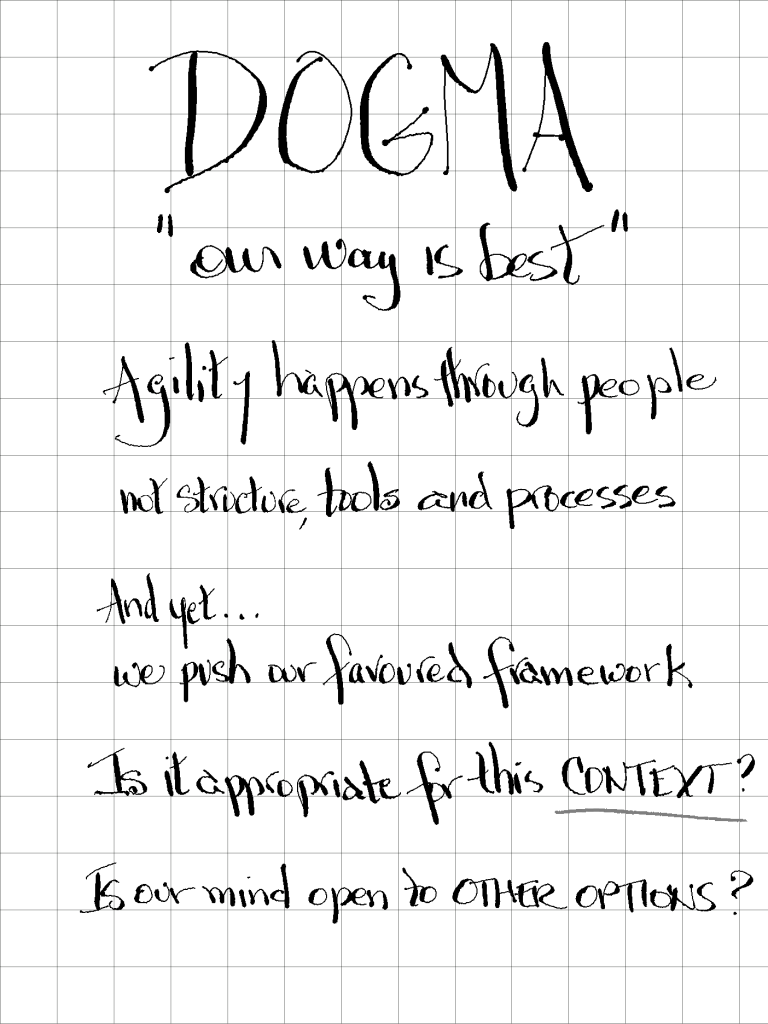 DOGMA
"our way is best"
Agility happens through people
not structure, tools and processes
And yet...
we push our favoured framework
Is it appropriate for this CONTEXT?
Is our mind open to OTHER OPTIONS?